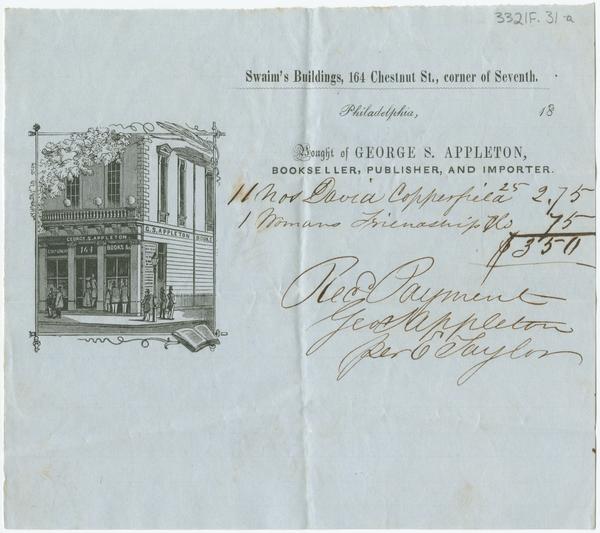 3321F. 31-a
Swaim's Buildings, 164 Chestnut St., corner of Seventh.
Philadelphia, 18
Bought of GEORGE S. APPLETON,
BOOKSELLER, PUBLISHER, AND IMPORTER.
11 Nos David Copperfield 25 2.75
1 Womans Friendship 75
$3 50
Recd Payment
Geo S Appleton
per C Taylor
G. S. APPLETON
GEORGE S. APPLETON
164 BOOKS &